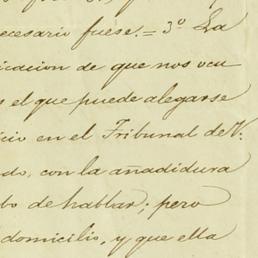 necesario fuese.= 3º La
icacion de que nos ocu
s el que puede alegarse
icio en el Tribunal de V.
do, con la añadidura
bo de hablar; pero
domicilio, y que ella